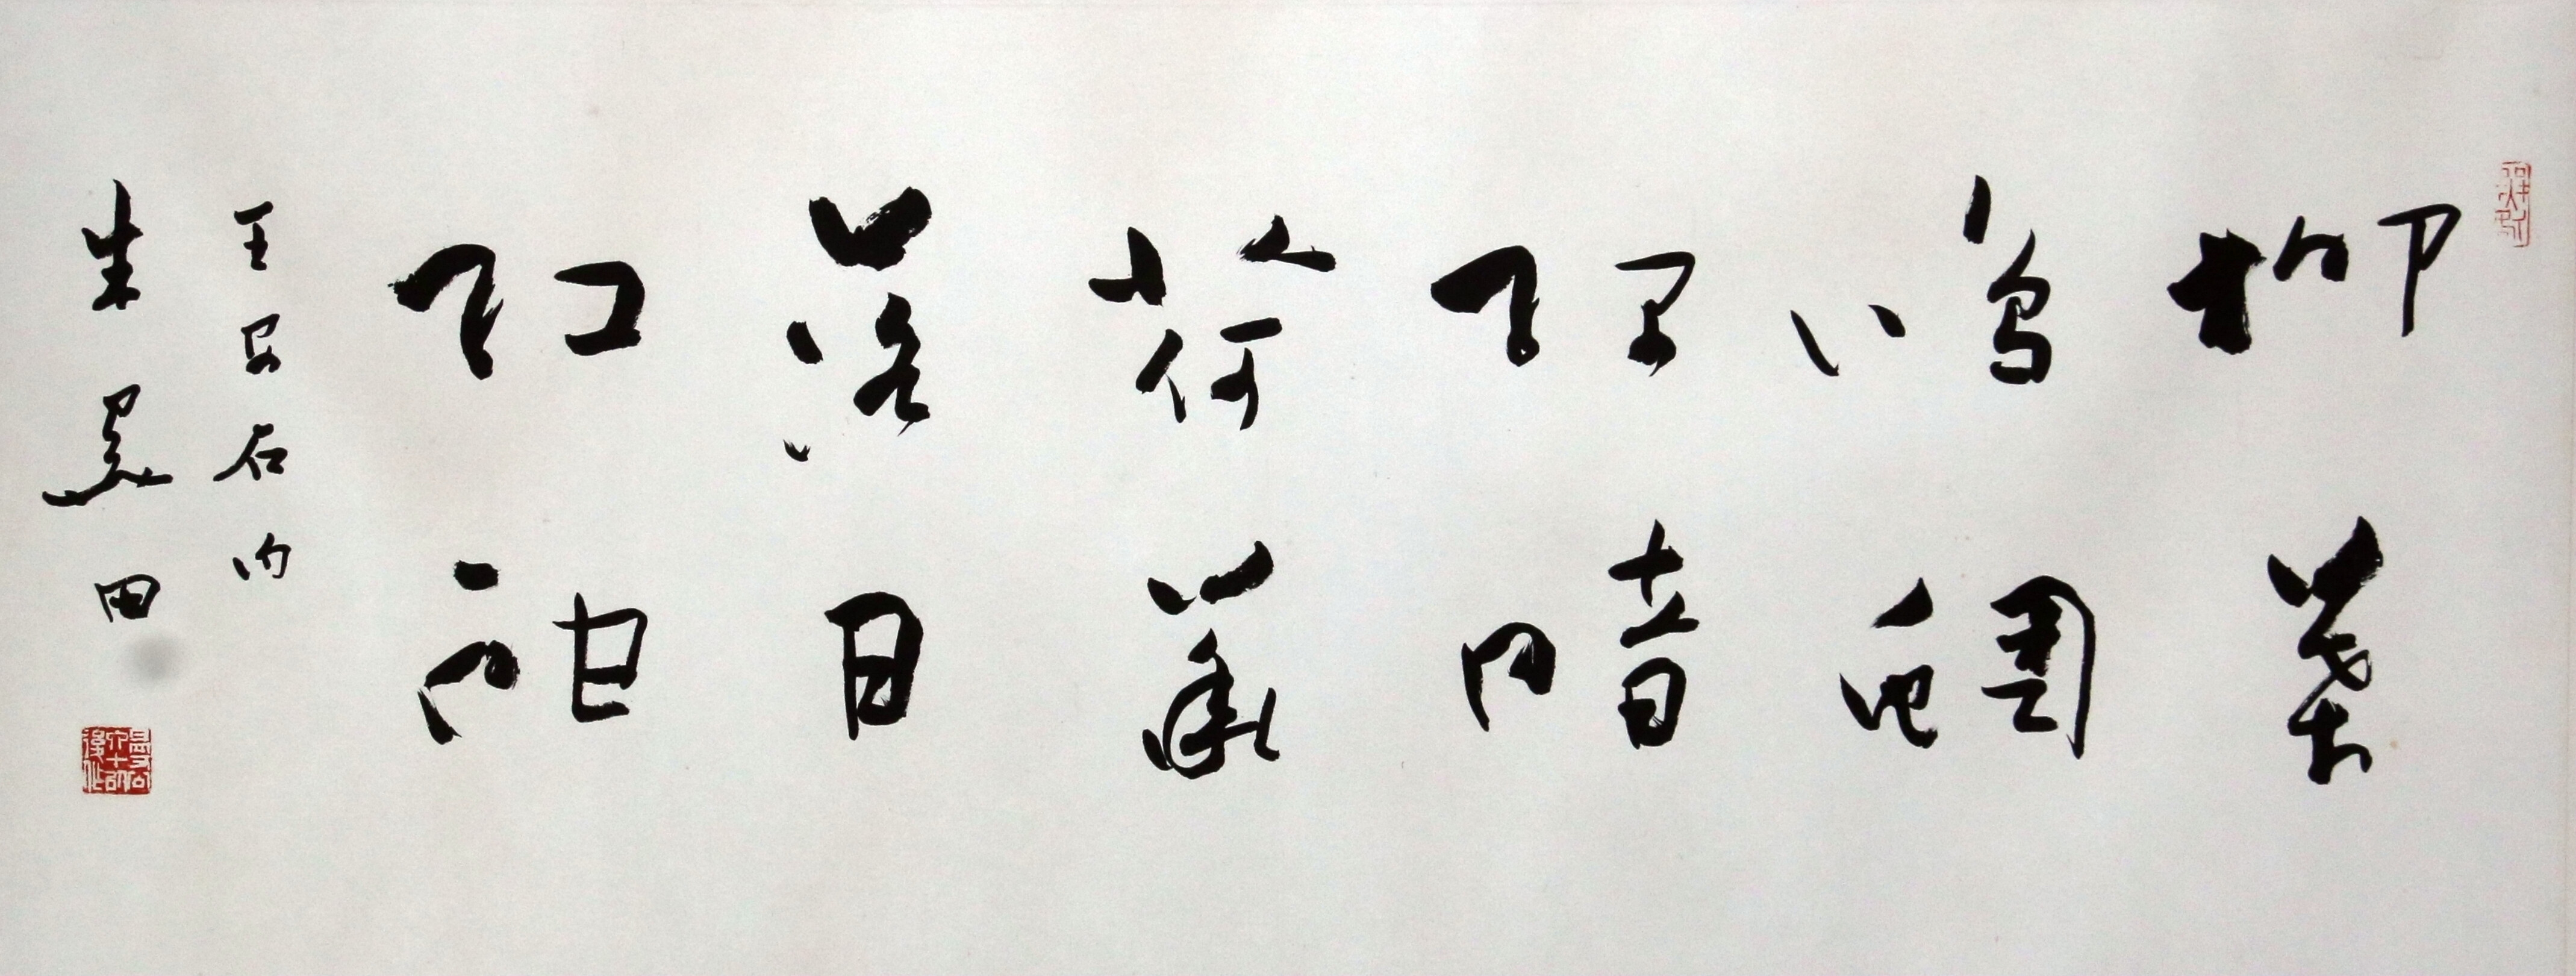 柳葉
鳴蜩
綠暗
荷華
落日
紅酣
王安石句
朱關田